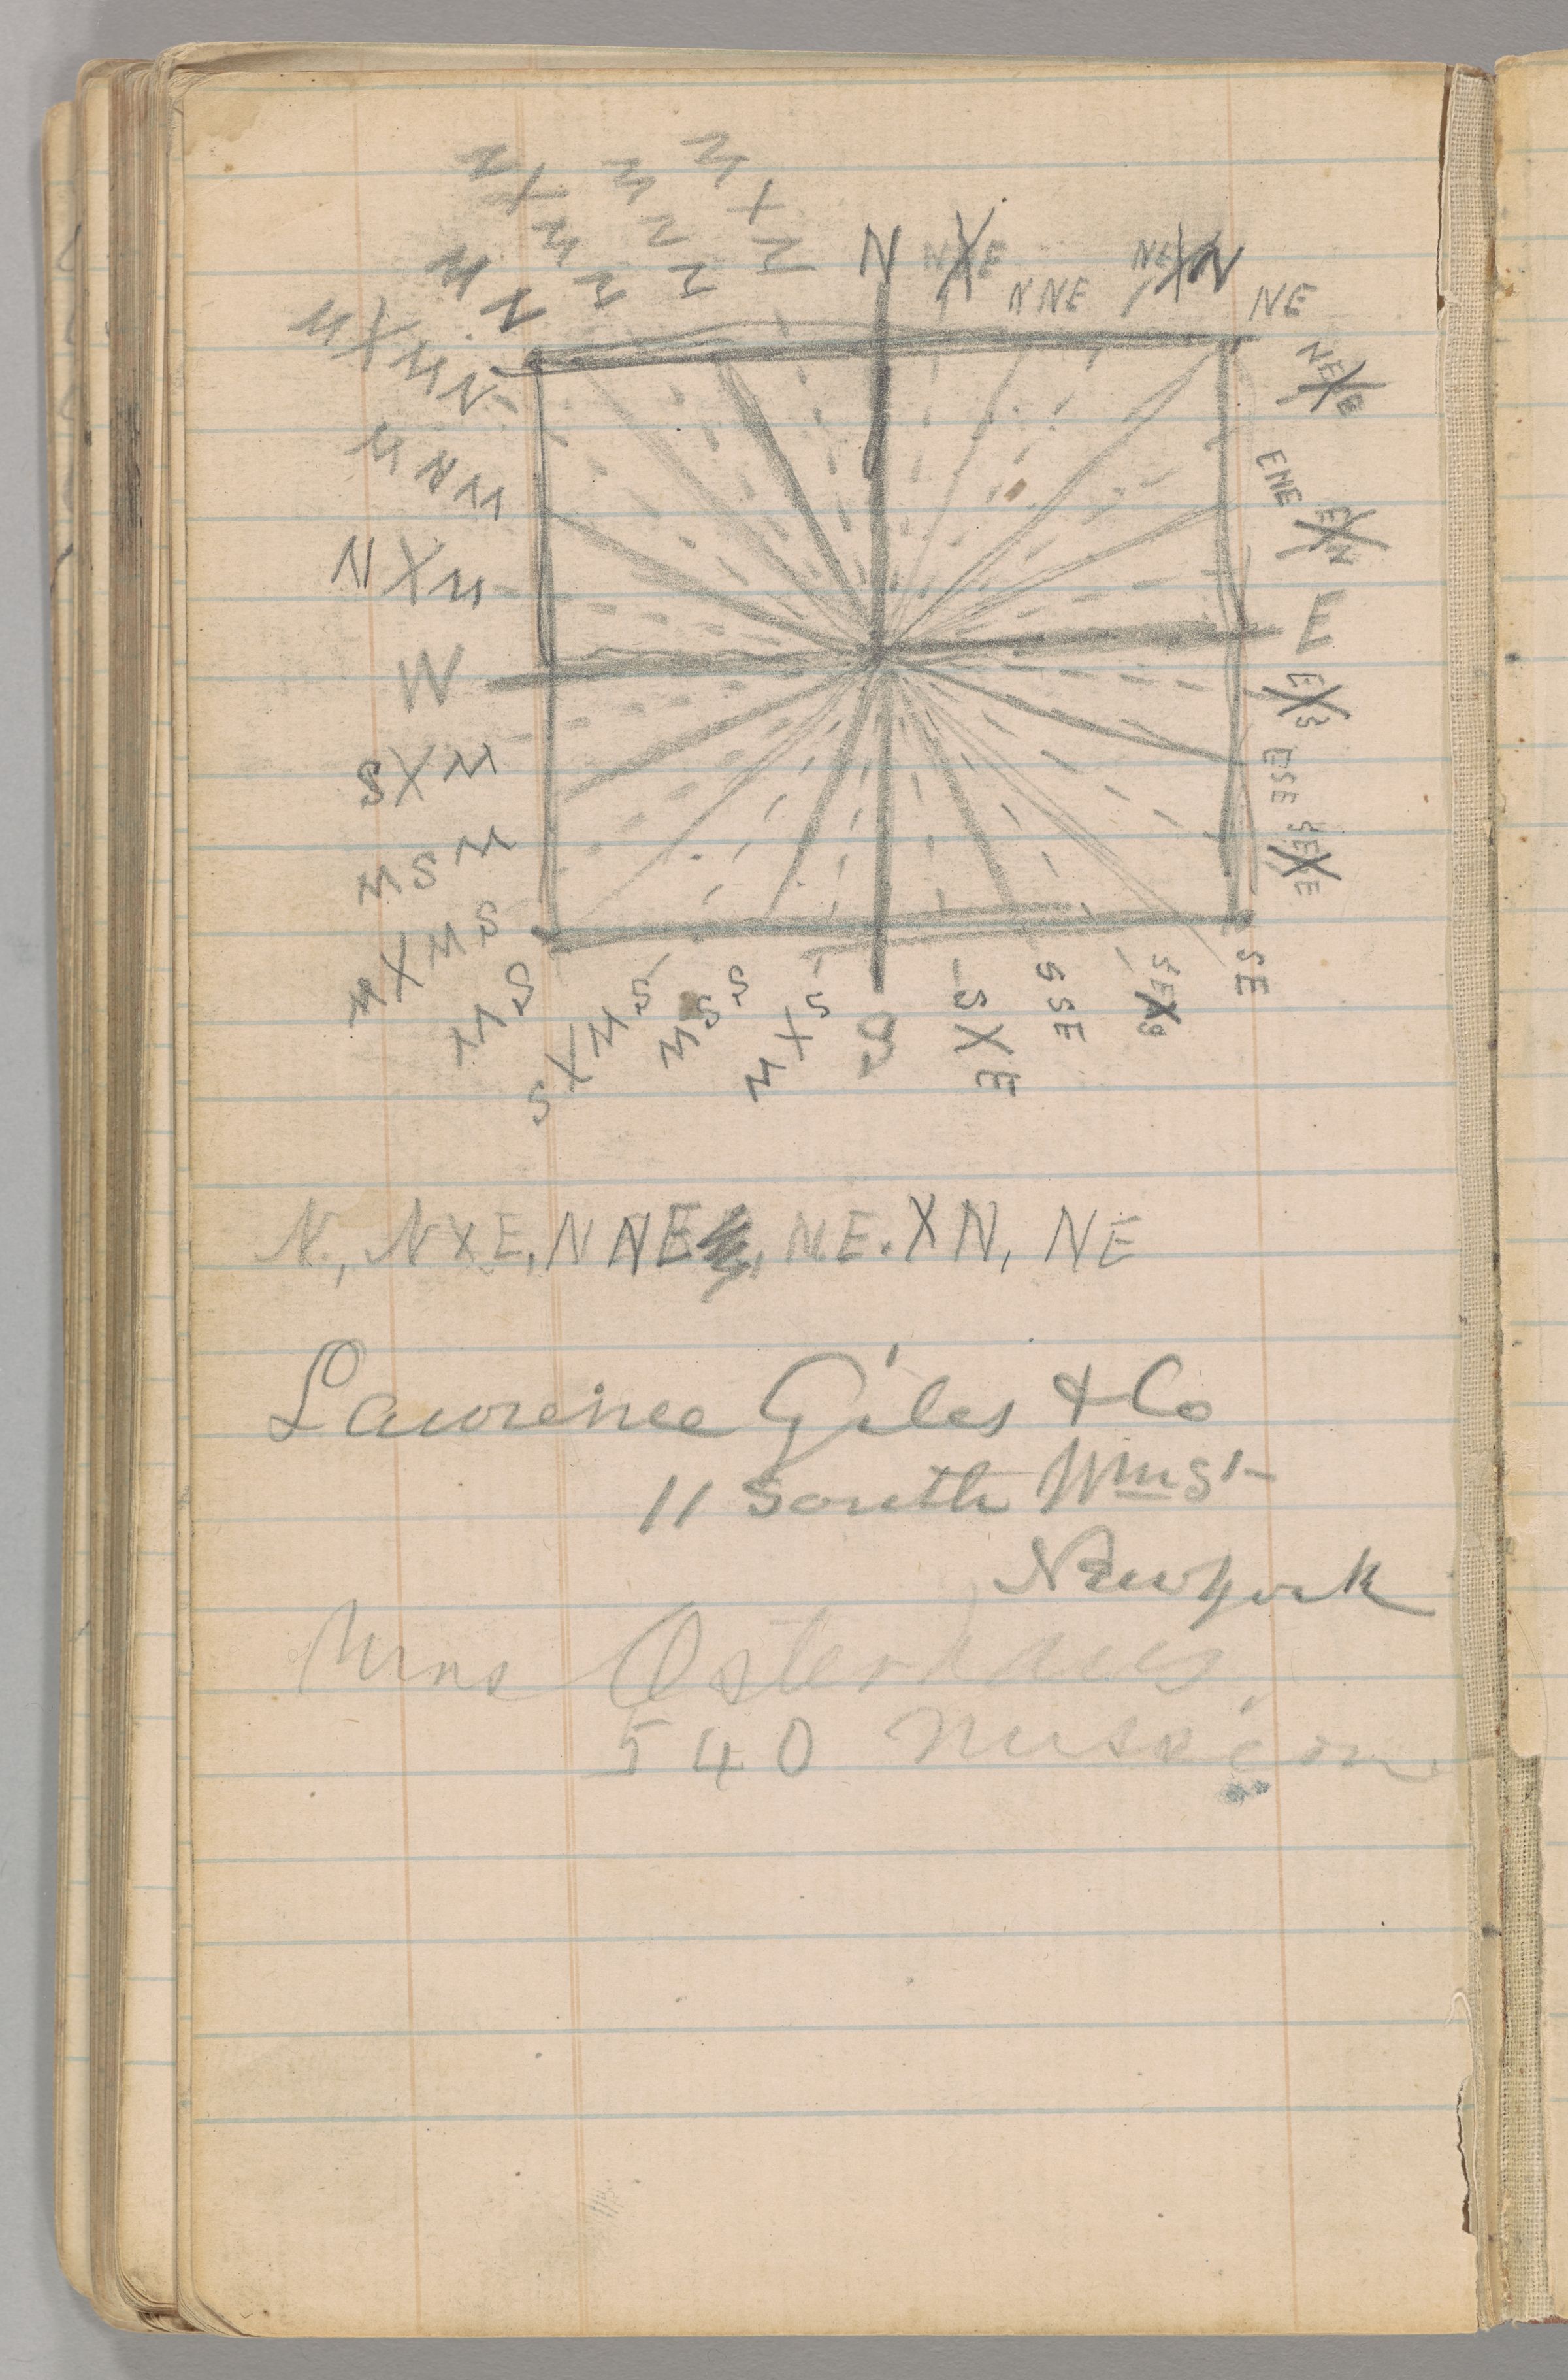 N
NXE
NNE
NEXN
NE
NEXE
ENE
EXN
E
EXS
ESE
SEXE
SE
SEXS
SSE
SXE
S
SXW
SSW
SWXS
SW
SWXW
WSW
WXS
W
WXN
WNW
NWXW
NW
NWXN
NNW
NXW
N., NXE, NNE, NE.XN, NE
Lawrence Giles & Co
11 South Wm St
New york
Mrs Osterhaus,
540